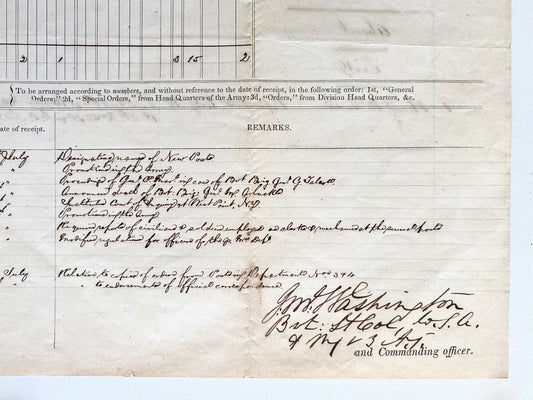 2 1 3 15 2
To be arranged according to numbers, and without reference to the date of receipt, in the following order: 1st, "General
Orders;" 2d, "Special Orders," from Head Quarters of the Army: 3d, "Orders," from Division Head Quarters, &c.
ate of receipt. REMARKS.
July Designating names of New Posts
" Promotions in the Army
" Proceedings of in case of Bvt Brig Genl G Talcott
" Announces death of Bvt. Brig: Genl
" Instituted Court of Inquiry at West Point, N.Y.
" Promotions in the Army
" Requires reports of civilians & soldiers employed as clerks & mechanics at the several posts
" Modifies regulation for officers of the Qr Mrs Dept
July Relative to copies of orders from Posts or Departments Nos 3 & 4
" to endorsements of official correspondence.
J. M. Washington
Bvt: Lt Col, U.S.A.
& Maj 3 Art.
and Commanding officer.